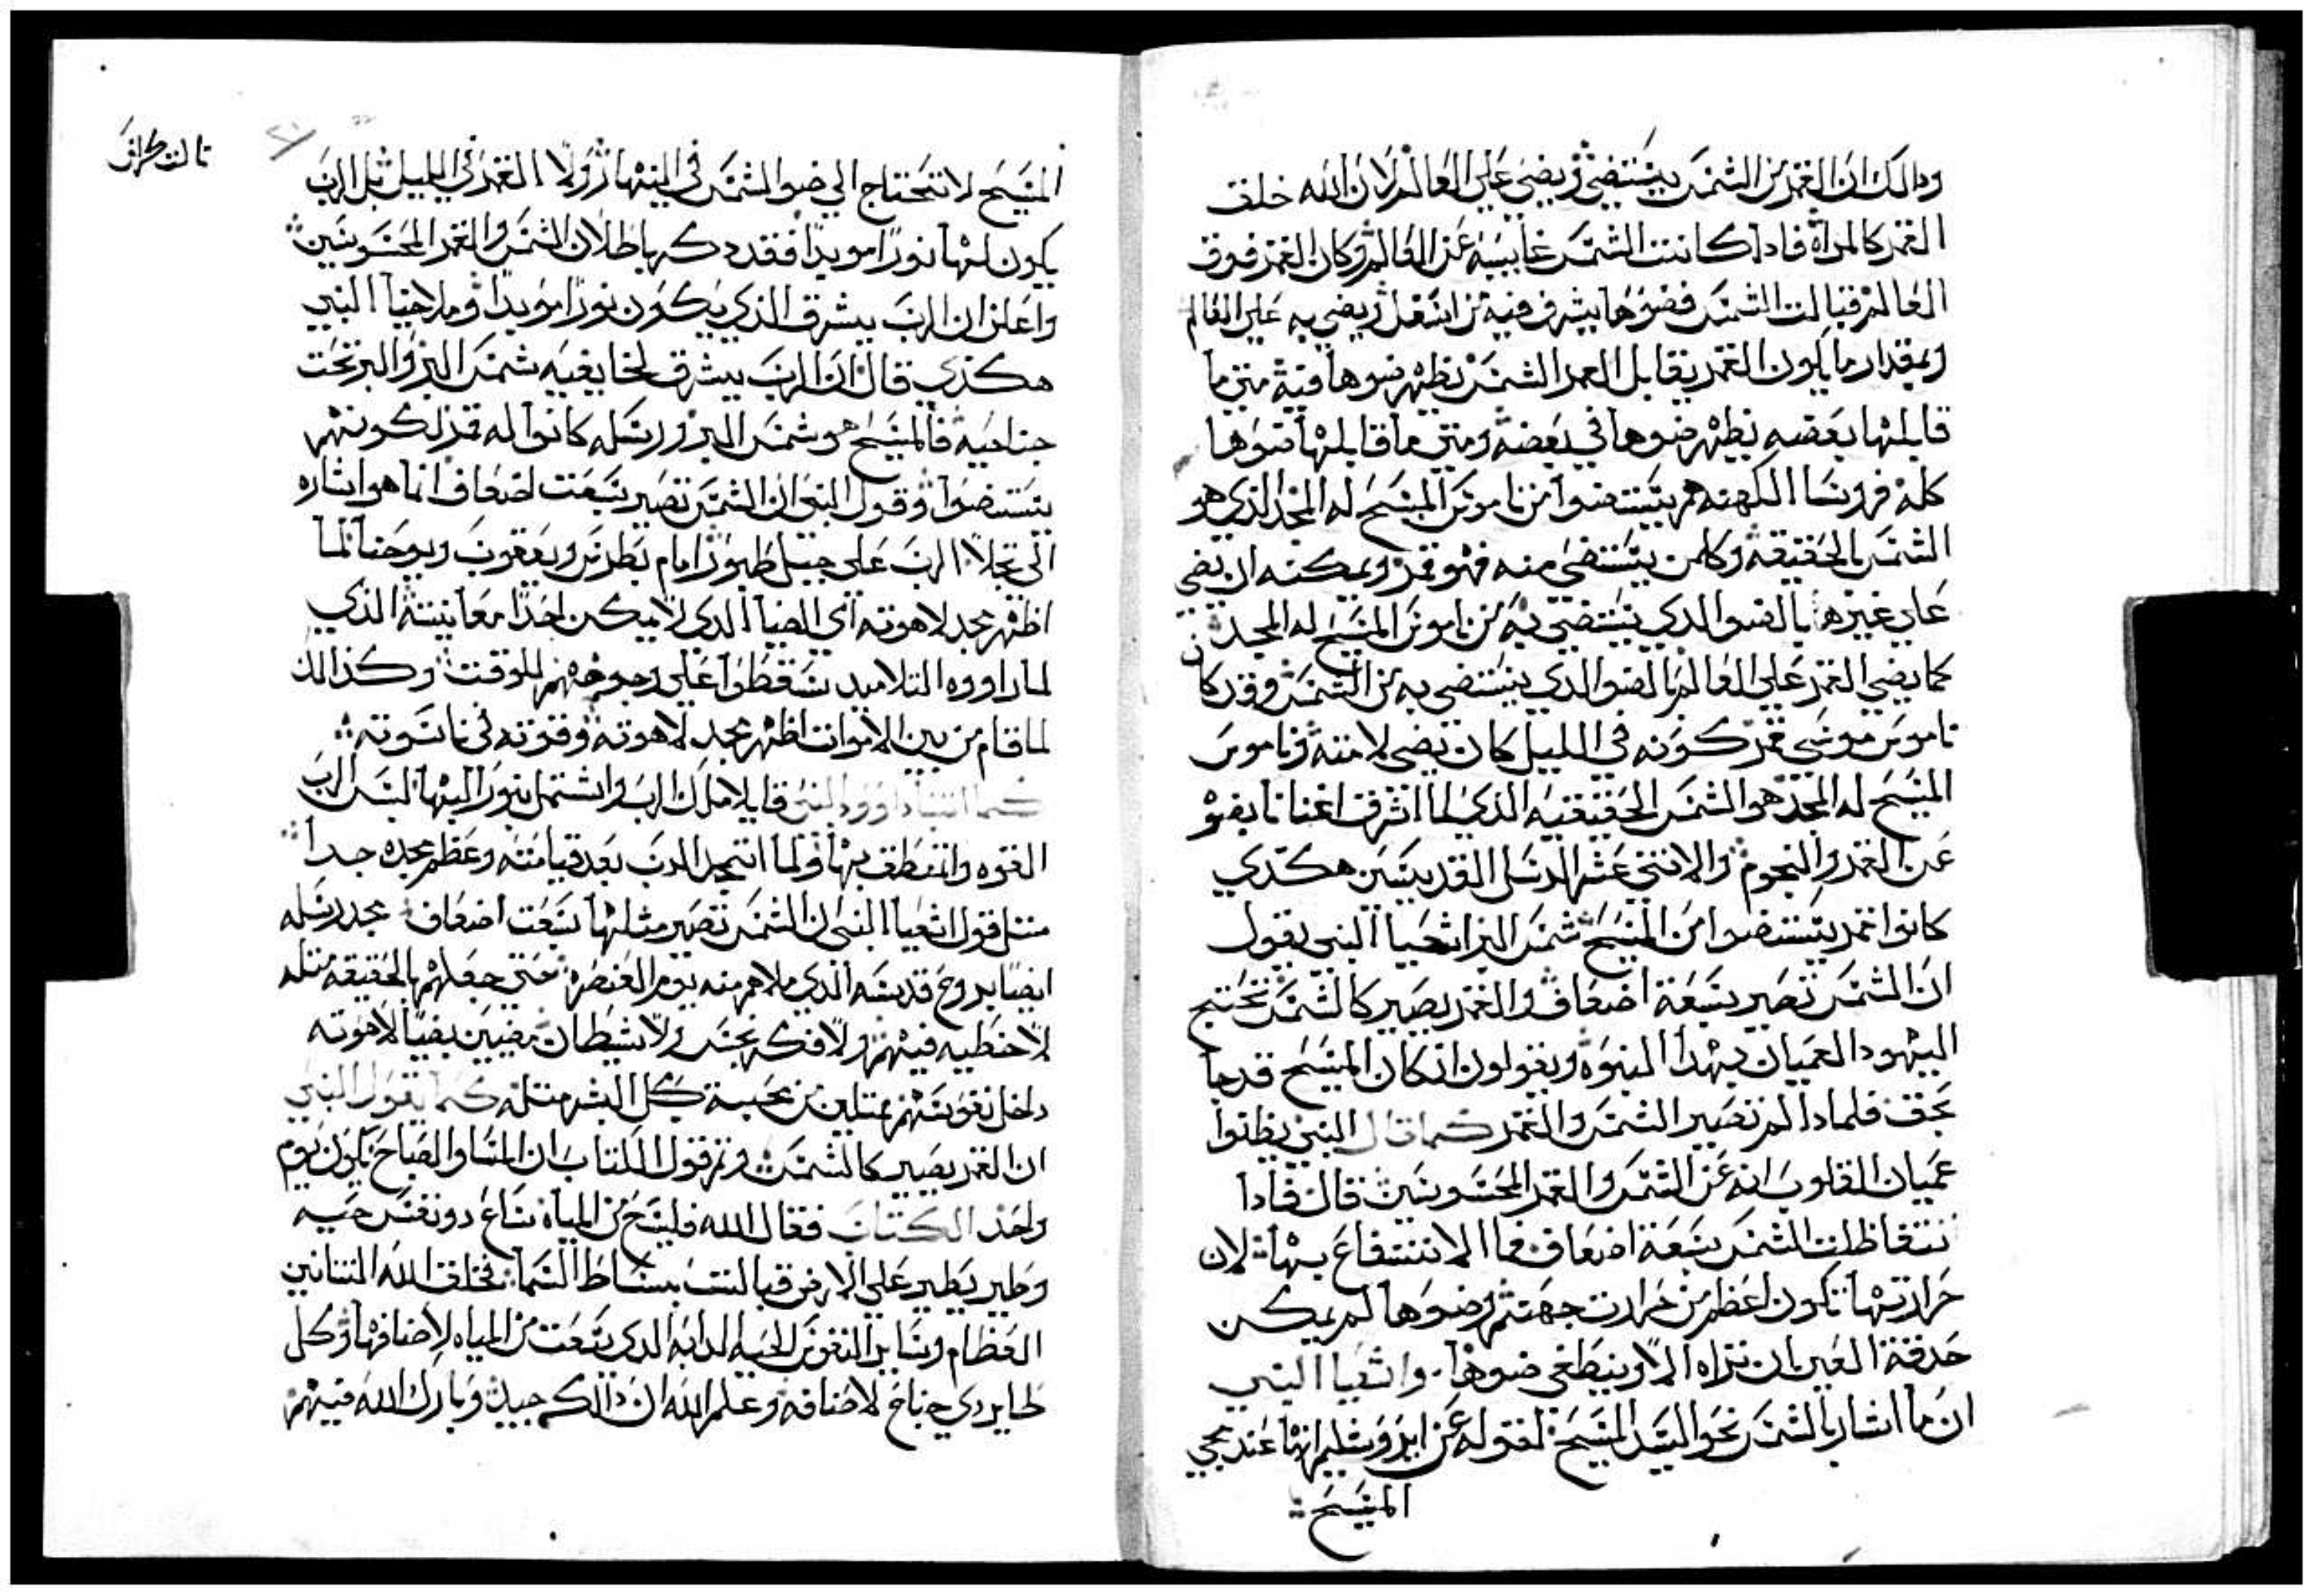 ودالك ان القمر من الشمس يستضي ويضي علي العالم لان الله خلق
القمر كالمراة فادا كانت الشمس غايبه عن العالم وكان القمر فوق
العالم قبالت الشمس فضوها يشرق فيه من اسفل ويضي به علي العالم
وبمقدار ما يكون القمر يقابل الشمس يظهر ضوها فيه متي ما
قابلها بعضه يظهر ضوها في بعضه ومتي ما قابلها ضوها
كله فروسا الكهنه هم يستضوا من ناموس المسيح له المجد الذي هو
الشمس بالحقيقه وكلمن يستضي منه فهو قمر ويمكنه ان يضي
علي غيره بالضو الدي يستضي به من ناموس المسيح له المجد
كما يضي القمر علي العالم بالضو الدي يستضي به من الشمس وقد كان
ناموس موسي قمر كونه في الليل كان يضي لامته وناموس
المسيح له المجد هو الشمس الحقيقيه الذي لما اشرق اغنانا بضو
عن القمر والنجوم والاتني عشر الرسل القديسين هكدي
كانوا قمر يستضوا من المسيح شمس البر اشعيا النبي يقول
ان الشمس تصير سبعة اضعاف والقمر يصير كالشمس تحتج
اليهود العميان بهدا النبوه ويقولون ان كان المسيح قد جا
بحق فلمادا لم تصير الشمس والقمر كما قال النبي يظنوا
عميان القلوب انه عن الشمس والقمر المحسوسين قال فادا
اضعاف فما الانتفاع بها لان
حرارتها تكون اعظم من حرارت جهنم وضوها لم يمكن
حدقة العين ان تراه الا وينطفي ضوها واشعيا النبي
ان ما اشار بالشمس نحو السيد المسيح لقوله عن ايروشليم انها عند مجي
المسيح
تالت كراس
المسيح لا تحتاج الي ضو الشمس في النهار ولا القمر في الليل بل الرب
يكون لها نورا موبدا فقد دكر بها بطلان الشمس والقمر المحسوسين
واعلن ان الرب يشرق الذي يكون نورا موبدا وملاخيا النبي
هكدي قال ان الرب يشرق لخايفيه شمس البر والبر تحت
جناحيه فالمسيح هو شمس البر ورسله كانوا له قمر لكونهم
يستضوا وقول النبي ان الشمس تصير سبعت اضعاف انما هو اشاره
الي تجلا الرب علي جبل طبور امام بطرس ويعقوب ويوحنا لما
اظهر مجد لاهوته اي الضيا الدي لا يمكن احدا معاينته الذي
لما راووه التلاميد سقطوا علي وجوههم للوقت وكذالك
لما قام من بين الاموات اظهر مجد لاهوته وقوته في ناسوته
كما انبا داوود النبي قايلا ملك الرب واشتمل بنور البها لبس الرب
القوه واتمنطق بها ولما اتمجد الرب بعد قيامته وعظم مجده جدا
متل قول اشعيا النبي ان الشمس تصير مثلها سبعت اضعاف مجد رسله
ايضا بروح قدسه الدي ملاهم منه يوم العنصره حتي جعلهم بالحقيقه متله
لا خطيه فيهم ولا فكر نجس ولا شيطان مضيين بضيا لاهوته
داخل نفوسهم ممتليين من محبة كل البشر متله كما يقول النبي
ان القمر يصير كالشمس وتم قول الكتاب ان المسا والصباح يكون يوم
واحد الكتاب فقال الله فليسح من المياه ساع دو نفس حيه
وطير يطير علي الارض قبالت بساط السما فخلق الله التنانين
العظام وساير النفوس الحيه الدابه الدي سعت من المياه لاصنافها وكل
طاير دي جناح لاصنافه وعلم الله ان دالك جيد وبارك الله فيهم